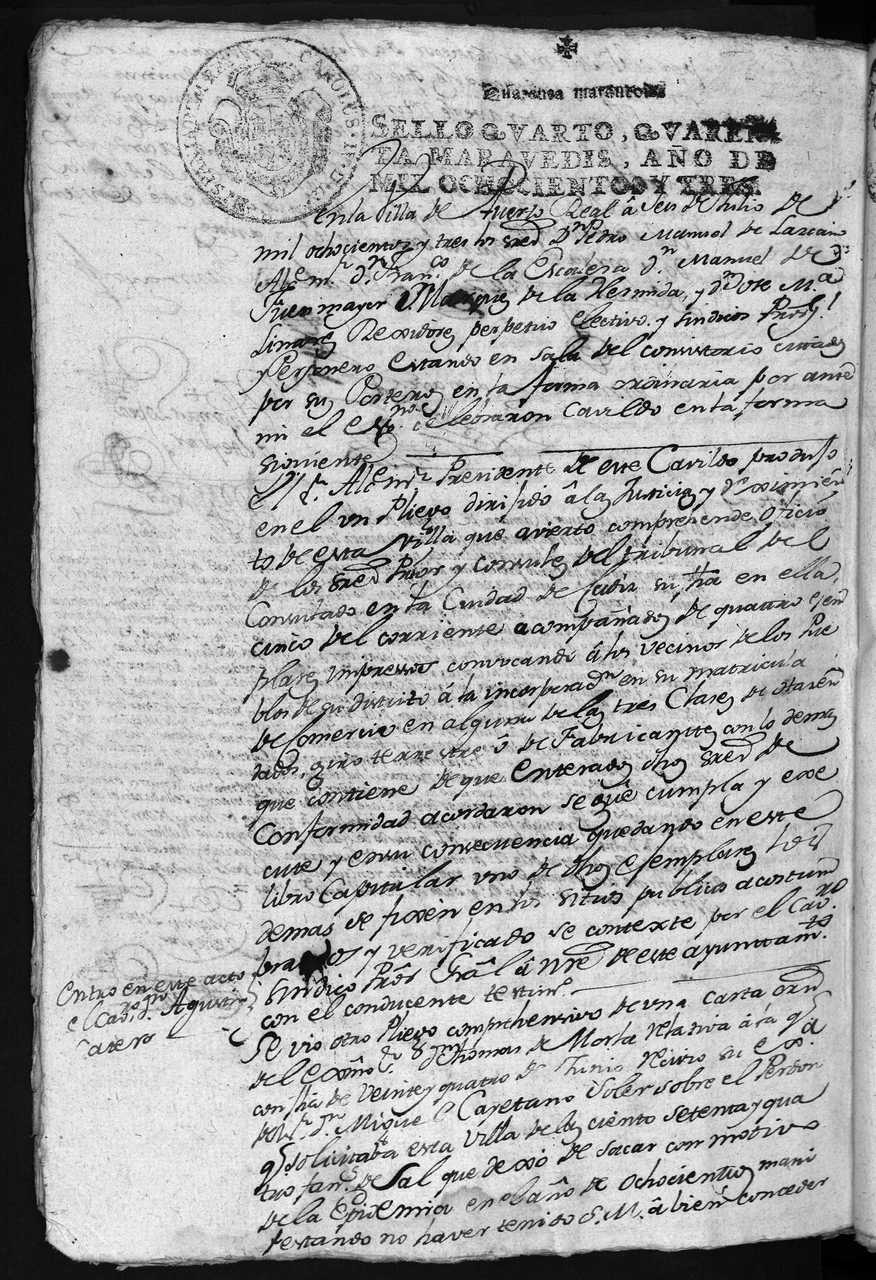 HISPANIARUM REX CAROLUS IV D G
Quarenta maravedis
SELLO QVARTO, QVAREN
TA MARAVEDIS, AÑO DE
MIL OCHOCIENTOS Y TRES.
En la Villa de Puerto Real â Seis de Julio de
mil ochocientos y tres los Sres. Dn. Pedro Manuel de
Alce mr. Dn. Franco. de la Escalera Dn. Manuel de
Fuenmayor Marques de la Hermida, y Dn. Jose Ma.
Linares Rexidores perpetuo electivo y Sindicos Procr.l
y Personero estando en sala del consistorio citados
por su Portero en la forma ordinaria por ante
mi el Esno. celebraron Cavildo en la forma
siguiente
El Sr. Alce mr. Presidente de este Cavildo produjo
en el un Pliego dirijido â la Justicia y Reximien
to de esta Villa que avierto comprehende oficio
de los Sres. Prior y Consules del tribunal del
Consulado en la Ciudad de Cadiz su fha en ella,
cinco del corriente acompañado de quattro ejem
plares impressos convocando â los vecinos de los Pue
blos de su distrito â la incorporacn. en su matricula
de Comercio en alguna de las tres Clases de
dados, giro terrestre ô de Fabricantes con lo demas
que contiene de que enterados dhos Sres. de
Conformidad acordaron se gue. cumpla y exe
cute y en su consecuencia quedando en este
libro Capitular uno de dhos exemplares los
demas se fixen en los sitios publicos acostum
brados y verificado se contexte por el Cavro.
Sindico Procr. Gral â nre. de este ayunttamto.
con el conducente testimo.
Entro en este acto
el Cavro. Dn. Agustin
Se vio otro Pliego comprehensivo de una carta orn.
del exmo. Sr. Dn. Thomas de Morla relativa â la qe.
con fha de Veinte y quatro de Junio recivio su exa.
del Sr. Dn. Miguel Cayetano Soler sobre el Perdon
qe. solicitaba esta Villa de las ciento setenta y qua
tro fans. de Sal que dexó de sacar con motivo
de la Epidemia en el año de Ochocientos mani
festando no haver tenido S. M. â bien conceder